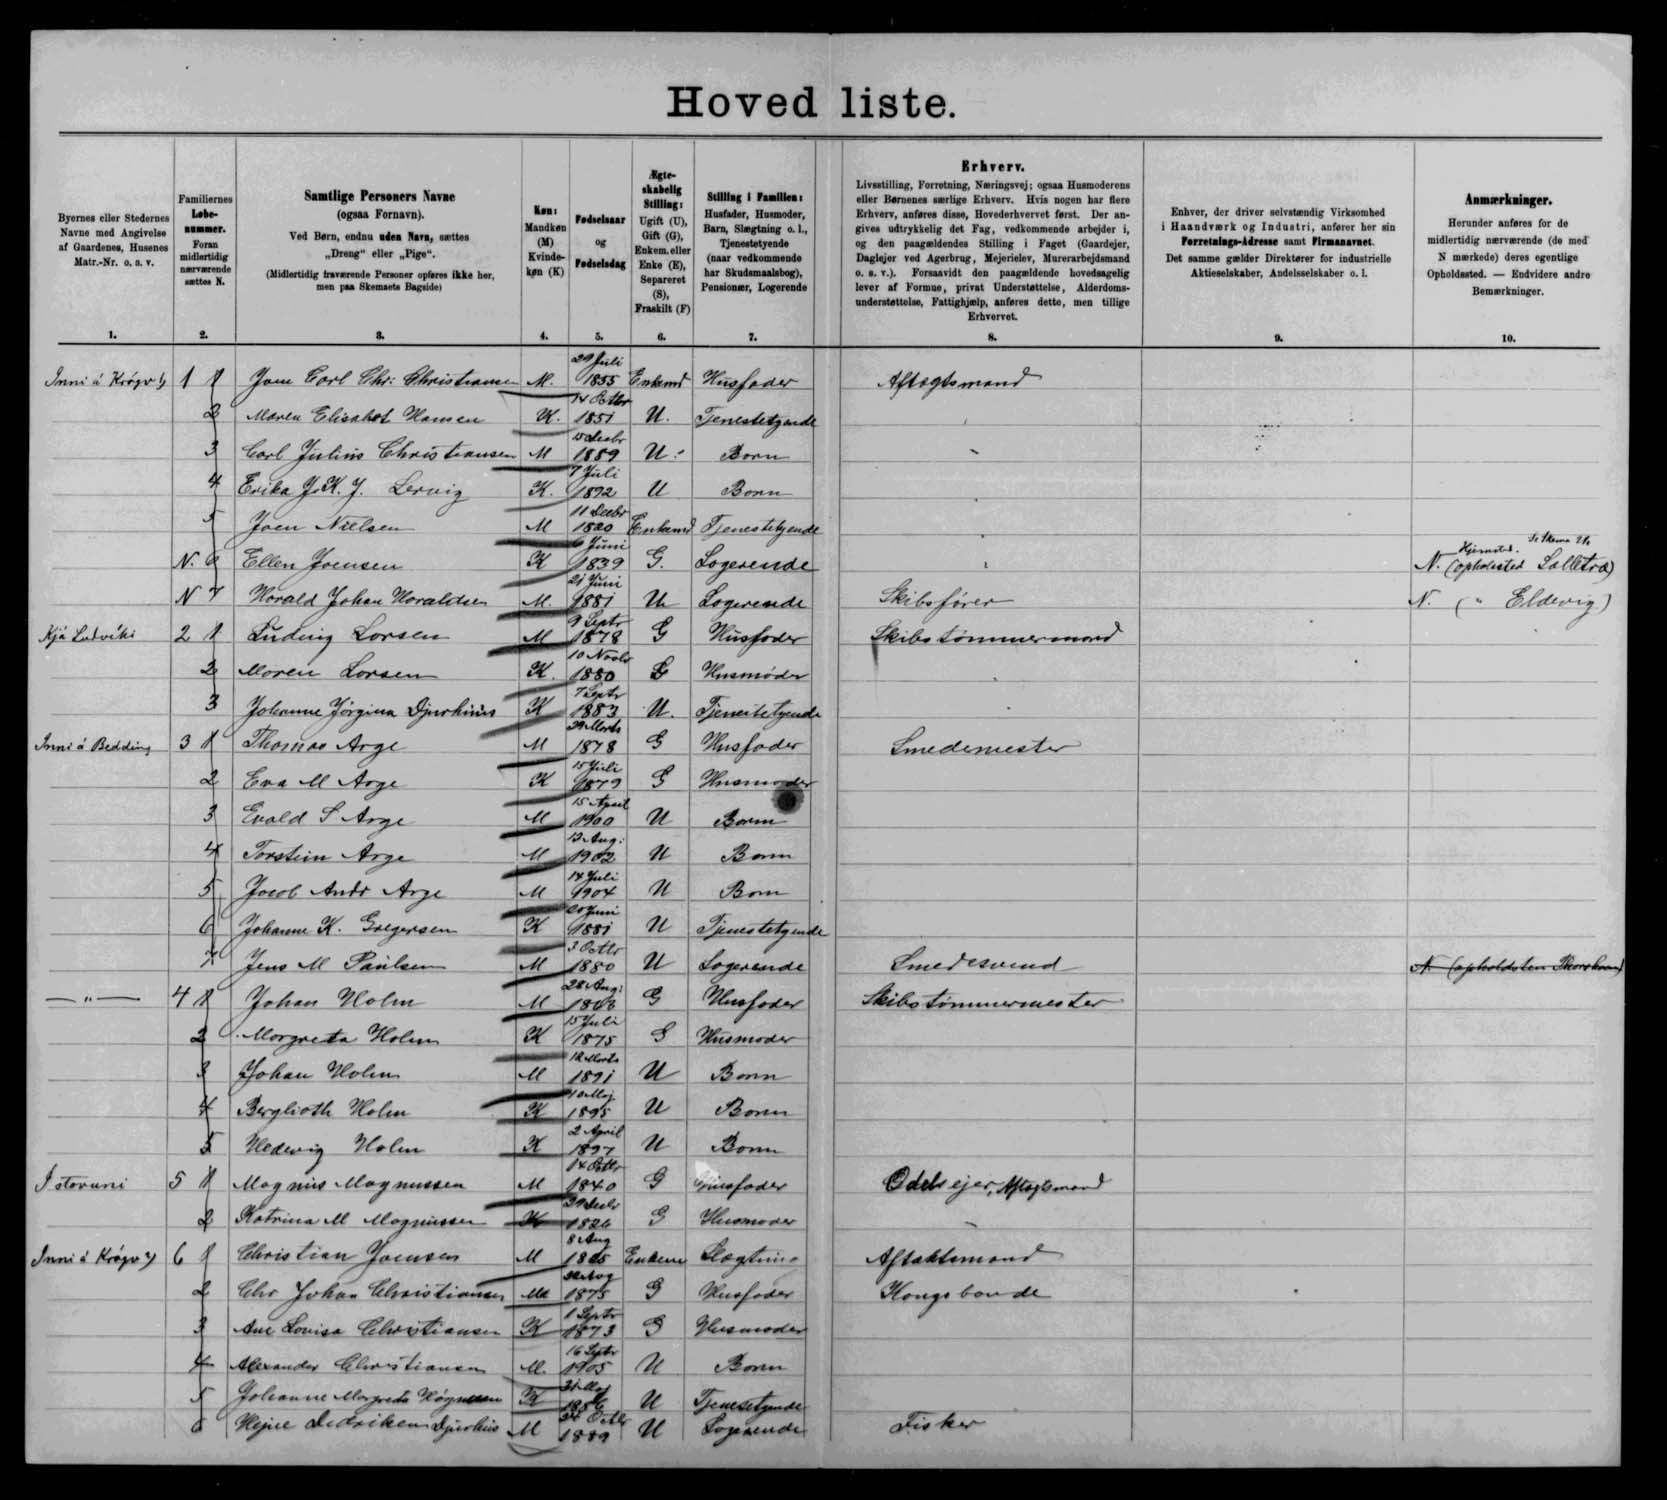 Hoved liste.
Byernes eller Stedernes Navne med Angivelse af Gaardenes, Husenes Matr.-Nr. o. s. v.
Familiernes Løbe-nummer. Foran midlertidig nærværende sættes N.
Samtlige Personers Navne
(ogsaa Fornavn).
Ved Børn, endnu uden Navn, sættes
„Dreng“ eller „Pige“.
(Midlertidig fraværende Personer opføres ikke her,
men paa Skemaets Bagside)
Køn: Mandkøn (M) Kvinde-køn (K)
Fødselsaar og Fødselsdag
Ægte-skabelig Stilling: Ugift (U), Gift (G), Enkem. eller Enke (E), Separeret (S), Fraskilt (F)
Stilling i Familien: Husfader, Husmoder, Barn, Slægtning o. l., Tjenestetyende (naar vedkommende har Skudsmaalsbog), Pensionær, Logerende
Erhverv.
Livsstilling, Forretning, Næringsvej; ogsaa Husmoderens
eller Børnenes særlige Erhverv. Hvis nogen har flere
Erhverv, anføres disse, Hovederhvervet først. Der an-
gives udtrykkelig det Fag, vedkommende arbejder i,
og den paagældendes Stilling i Faget (Gaardejer,
Daglejer ved Agerbrug, Mejerielev, Murerarbejdsmand
o. s. v.). Forsaavidt den paagældende hovedsagelig
lever af Formue, privat Understøttelse, Alderdoms-
understøttelse, Fattighjælp, anføres dette, men tillige
Erhvervet.
Enhver, der driver selvstændig Virksomhed
i Haandværk og Industri, anfører her sin
Forretnings-Adresse samt Firmanavnet.
Det samme gælder Direktører for industrielle
Aktieselskaber, Andelsselskaber o. l.
Anmærkninger.
Herunder anføres for de
midlertidig nærværende (de med
N mærkede) deres egentlige
Opholdssted. — Endvidere andre
Bemærkninger.
1. 2. 3. 4. 5. 6. 7. 8. 9. 10.
Inni á Krógv 1) 1 1 Joen Carl Chr: Christiansen M. 29 Juli 1855 Enkemd Husfader Aftægtsmand
2 Maren Elisabet Hansen K. 14 Octbr 1851 U. Tjenestetyende
3 Carl Julius Christiansen M 15 Decbr 1889 U. Barn
4 Erika J. K. J. Lervig K. 7 Juli 1892 U Barn
5 Joen Nielsen M 11 Decbr 1820 Enkemd Tjenestetyende
N. 6 Ellen Joensen K 6 Juni 1839 G. Logerende N. (opholssted
N 7 Harald Johan Haraldsen M. 21 Juni 1881 U. Logerende Skibsfører N. ( " Eldevig)
Hjá Ludviki 2 1 Ludvig Larsen M 9 Septr 1878 G Husfader Skibstømmermand
2 Maren Larsen K. 10 Novbr 1880 G Husmoder
3 Johanne Jørgina Djurhuus K 7 Septr 1883 U. Tjenestetyende
Inni á Bedding 3 1 Thomas Arge M 29 Marts 1878 G Husfader Smedemester
2 Eva M Arge K 15 Juli 1879 G Husmoder
3 Evald S Arge M 15 April 1900 U Barn
4 Torstein Arge M 13 Aug: 1902 U Barn
5 Jacob Andr Arge M 14 Juli 1904 U Barn
6 Johanne K. Gregersen K 20 Juni 1881 U Tjenestetyende
7 Jens M Paulsen M 3 Octbr 1880 U Logerende Smedesvend N. (opholdsten Thorshavn)
— " — 4 1 Johan Holm M 28 Aug: G Husfader Skibstømmermester
2 Margreta Holm K 15 Juli 1875 G Husmoder
3 Johan Holm M Marts 1891 U Barn
4 Berglioth Holm K 10 Maj 1895 U Barn
5 Hedevig Holm K 2 April 1897 U Barn
I stovuni 5 1 Magnus Magnussen M 14 Octbr 1840 G Husfader Odelsejer, Aftægtsmand
2 Katrina M Magnussen K G Husmoder
Inni á Krógv 2) 6 1 Christian Joensen M 8 Aug Slægtning Aftaktsmand
2 Chr Johan Christiansen M 1875 G Husfader Kongsbonde
3 Ane Lovisa Christiansen K 1 Septr 1873 G Husmoder
4 Alexander Christiansen M. 16 Septr 1905 U Barn
5 Johanne Margreta K 31 Maj U Tjenestetyende
6 Djurhuus M 24 Octbr 1889 U Logerende Fisker